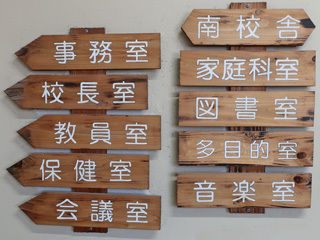 事務室
校長室
教員室
保健室
会議室
南校舎
家庭科室
図書室
多目的室
音楽室